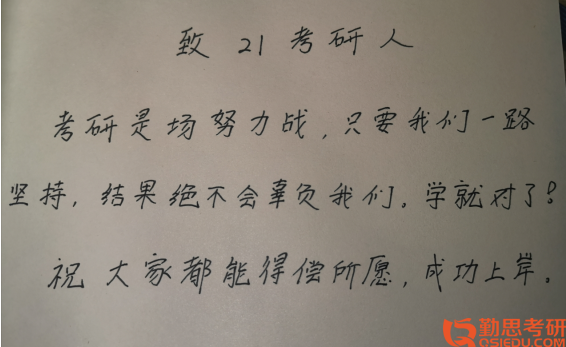 致 21 考研人
考研是场努力战，只要我们一路
坚持，结果绝不会辜负我们。学就对了！
祝大家都能得偿所愿，成功上岸。
勤思考研
QSIEDU.COM